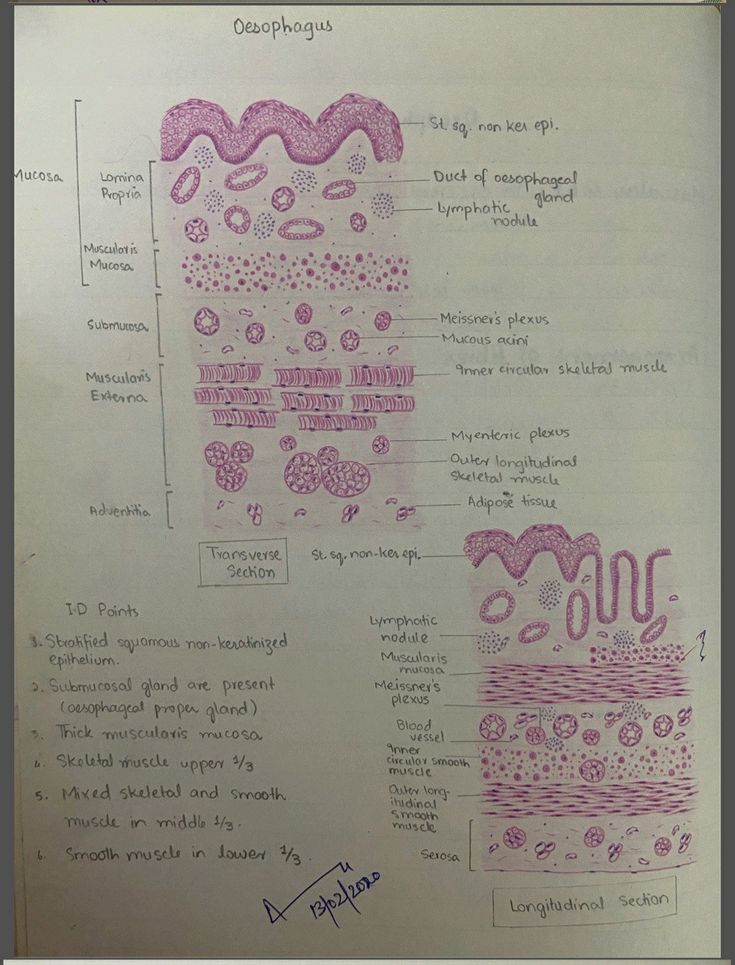 Oesophagus
St. sq. non ker epi.
Mucosa
Lamina
Propria
Duct of oesophageal
gland
Lymphatic
nodule
Muscularis
Mucosa
Submucosa
Meissner's plexus
Mucous acini
Muscularis
Externa
Inner circular skeletal muscle
Myenteric plexus
Outer longitudinal
skeletal muscle
Adventitia
Adipose tissue
Transverse
Section
St. sq. non-ker epi.
Lymphatic
nodule
Muscularis
mucosa
Meissner's
plexus
Blood
vessel
Inner
circular smooth
muscle
Outer long-
itudinal
smooth
muscle
Serosa
Longitudinal Section
I.D Points
1. Stratified squamous non-keratinized
epithelium.
2. Submucosal gland are present
(oesophageal proper gland)
3. Thick muscularis mucosa
4. Skeletal muscle upper 1/3
5. Mixed skeletal and smooth
muscle in middle 1/3.
6. Smooth muscle in lower 1/3.
13/02/2020